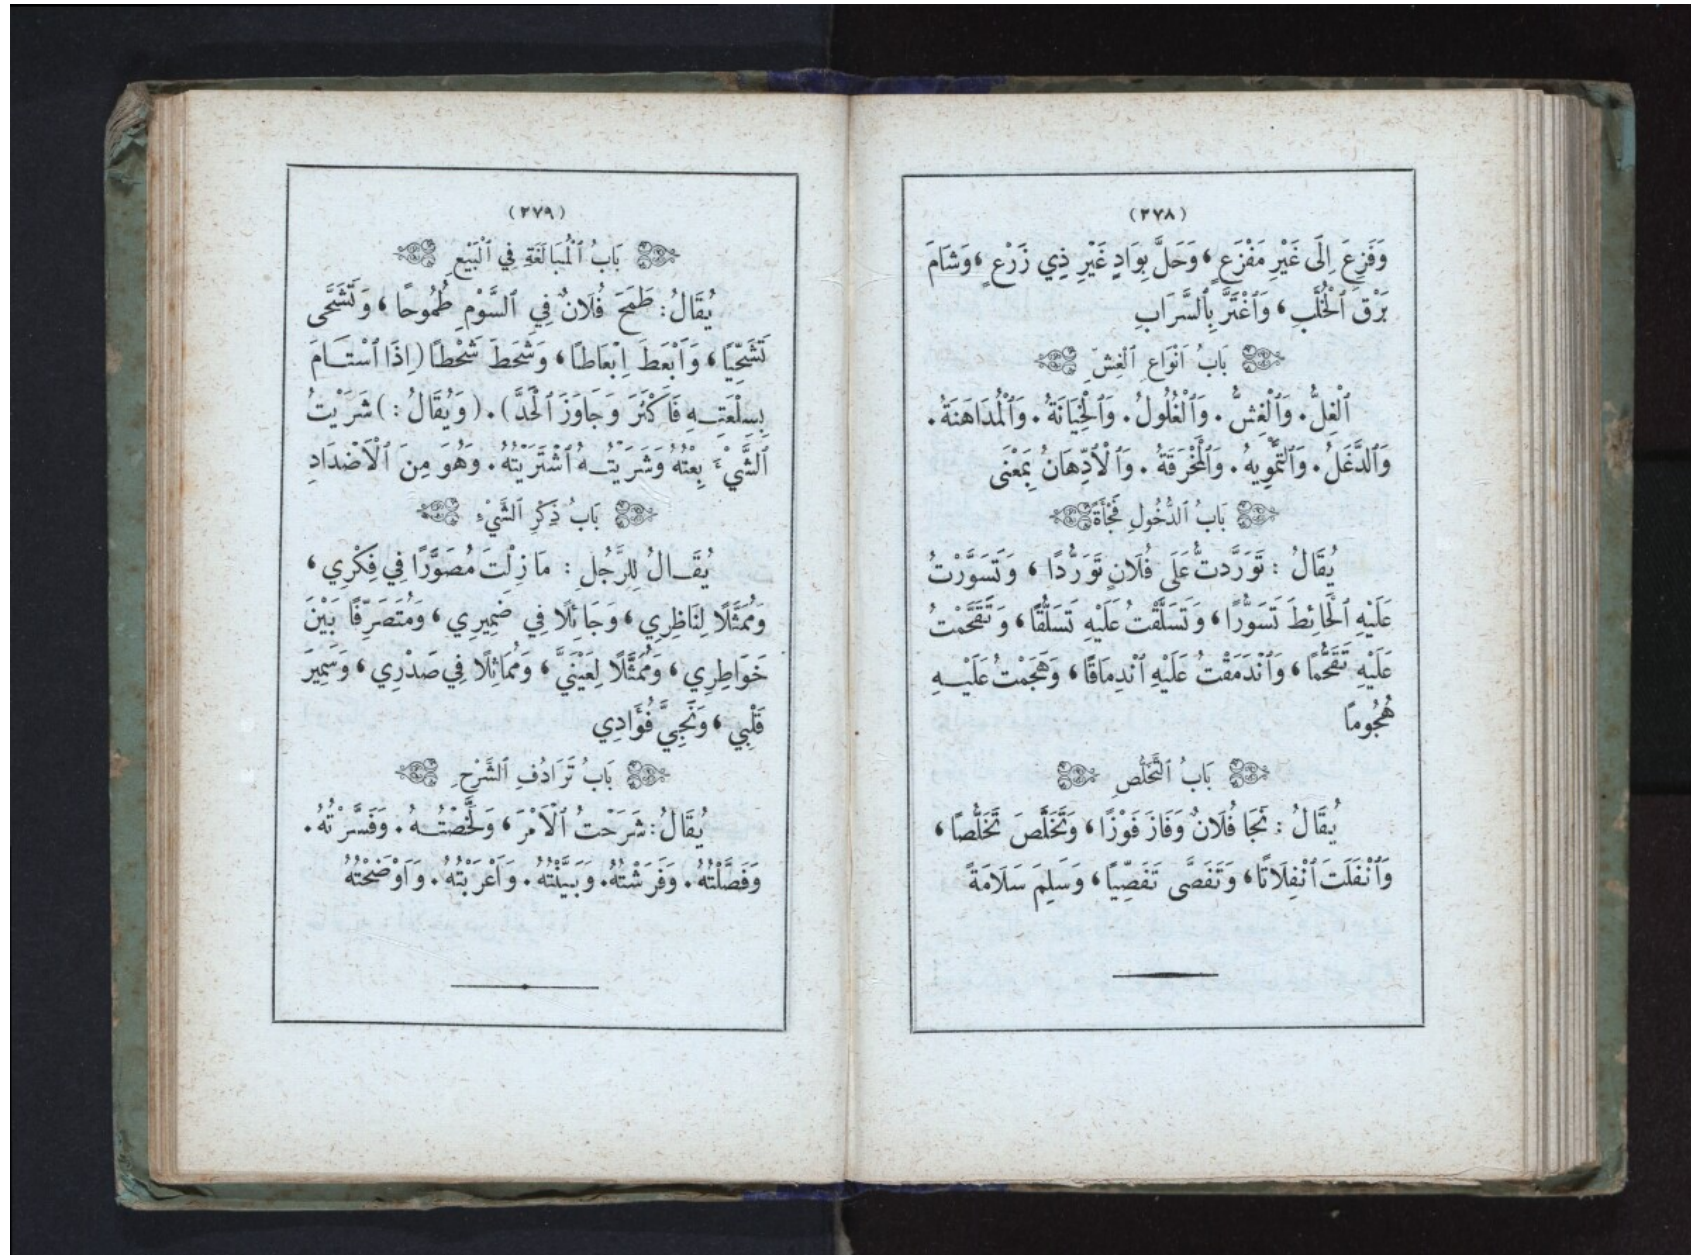 (٢٧٨)
وَفَزِعَ اِلَى غَيْرِ مَفْزَعٍ، وَحَلَّ بِوَادٍ غَيْرِ ذِي زَرْعٍ، وَشَامَ
بَرْقَ ٱلْخُلَّبِ، وَٱغْتَرَّ بِٱلسَّرَابِ
بَابُ اَنْوَاعِ ٱلْغِشِّ
اَلْغِلُّ. وَٱلْغِشُّ. وَٱلْغُلُولُ. وَٱلْخِيَانَةُ. وَٱلْمُدَاهَنَةُ.
وَٱلدَّغَلُ. وَٱلتَّمْوِيهُ. وَٱلْمَخْرَقَةُ. وَٱلْاَدِّهَانُ بِمَعْنَى
بَابُ ٱلدُّخُولِ فَجْأَةً
يُقَالُ: تَوَرَّدتُّ عَلَى فُلَانٍ تَوَرُّدًا، وَتَسَوَّرْتُ
عَلَيْهِ ٱلْحَائِطَ تَسَوُّرًا، وَتَسَلَّقْتُ عَلَيْهِ تَسَلُّقًا، وَتَقَحَّمْتُ
عَلَيْهِ تَقَحُّمًا، وَٱنْدَمَقْتُ عَلَيْهِ ٱنْدِمَاقًا، وَهَجَمْتُ عَلَيْـهِ
هُجُومًا
بَابُ ٱلتَّخَلُّصِ
يُقَالُ: نَجَا فُلَانٌ وَفَازَ فَوْزًا، وَتَخَلَّصَ تَخَلُّصًا،
وَٱنْفَلَتَ ٱنْفِلَاتًا، وَتَفَصَّى تَفَصِّيًا، وَسَلِمَ سَلَامَةً
(٢٧٩)
بَابُ ٱلْمُبَالَغَةِ فِي ٱلْبَيْعِ
يُقَالُ: طَمَحَ فُلَانٌ فِي ٱلسَّوْمِ طُمُوحًا، وَتَشَحَّى
تَشَحِّيًا، وَاَبْعَطَ اِبْعَاطًا، وَشَحَطَ شَحْطًا (اِذَا ٱسْتَـامَ
بِسِلْعَتِـهِ فَاَكْثَرَ وَجَاوَزَ ٱلْحَدَّ). (وَيُقَالُ:) شَرَيْتُ
ٱلشَّيْءَ بِعْتُهُ وَشَرَيْتُـهُ ٱشْتَرَيْتُهُ. وَهُوَ مِنَ ٱلْاَضْدَادِ
بَابُ ذِكْرِ ٱلشَّيْءِ
يُقَـالُ لِلرَّجُلِ: مَا زِلْتَ مُصَوَّرًا فِي فِكْرِي،
وَمُمَثَّلًا لِنَاظِرِي، وَجَائِلًا فِي ضَمِيرِي، وَمُتَصَرِّفًا بَيْنَ
خَوَاطِرِي، وَمُمَثَّلًا لِعَيْنَيَّ، وَمُمَاثِلًا فِي صَدْرِي، وَسَمِيرَ
قَلْبِي، وَنَجِيَّ فُؤَادِي
بَابُ تَرَادُفِ ٱلشَّرْحِ
يُقَالُ: شَرَحْتُ ٱلْاَمْرَ، وَلَخَّصْتُـهُ. وَفَسَّرْتُهُ.
وَفَصَّلْتُهُ. وَفَرَشْتُهُ. وَبَيَّنْتُهُ. وَاَعْرَبْتُهُ. وَاَوْضَحْتُهُ